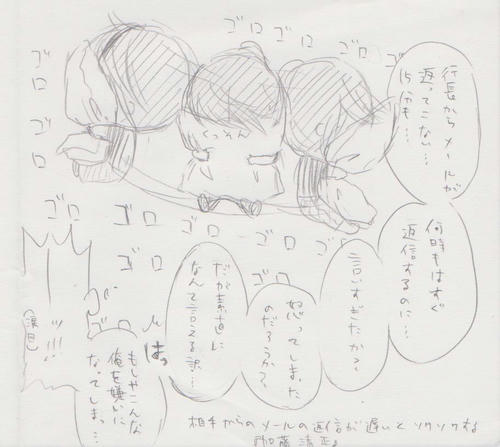 ゴロ
ゴロ
ゴロ
ゴロ
ゴロ
ゴロ
行長からメールが
返ってこない…
15分も…
何時もはすぐ
返信するのに…
言いすぎたか?
怒ってしまった
のだろうか?
だが素直に
なんて言える訳…
ゴロ
ゴロ
ゴロ
ゴロ
ゴロ
ゴロ
はっ
もしやこんな
俺を嫌いに
なってしまっ…
ッ!!!
(涙目)
相手からのメールの返信が遅いとソワソワな
加藤清正。